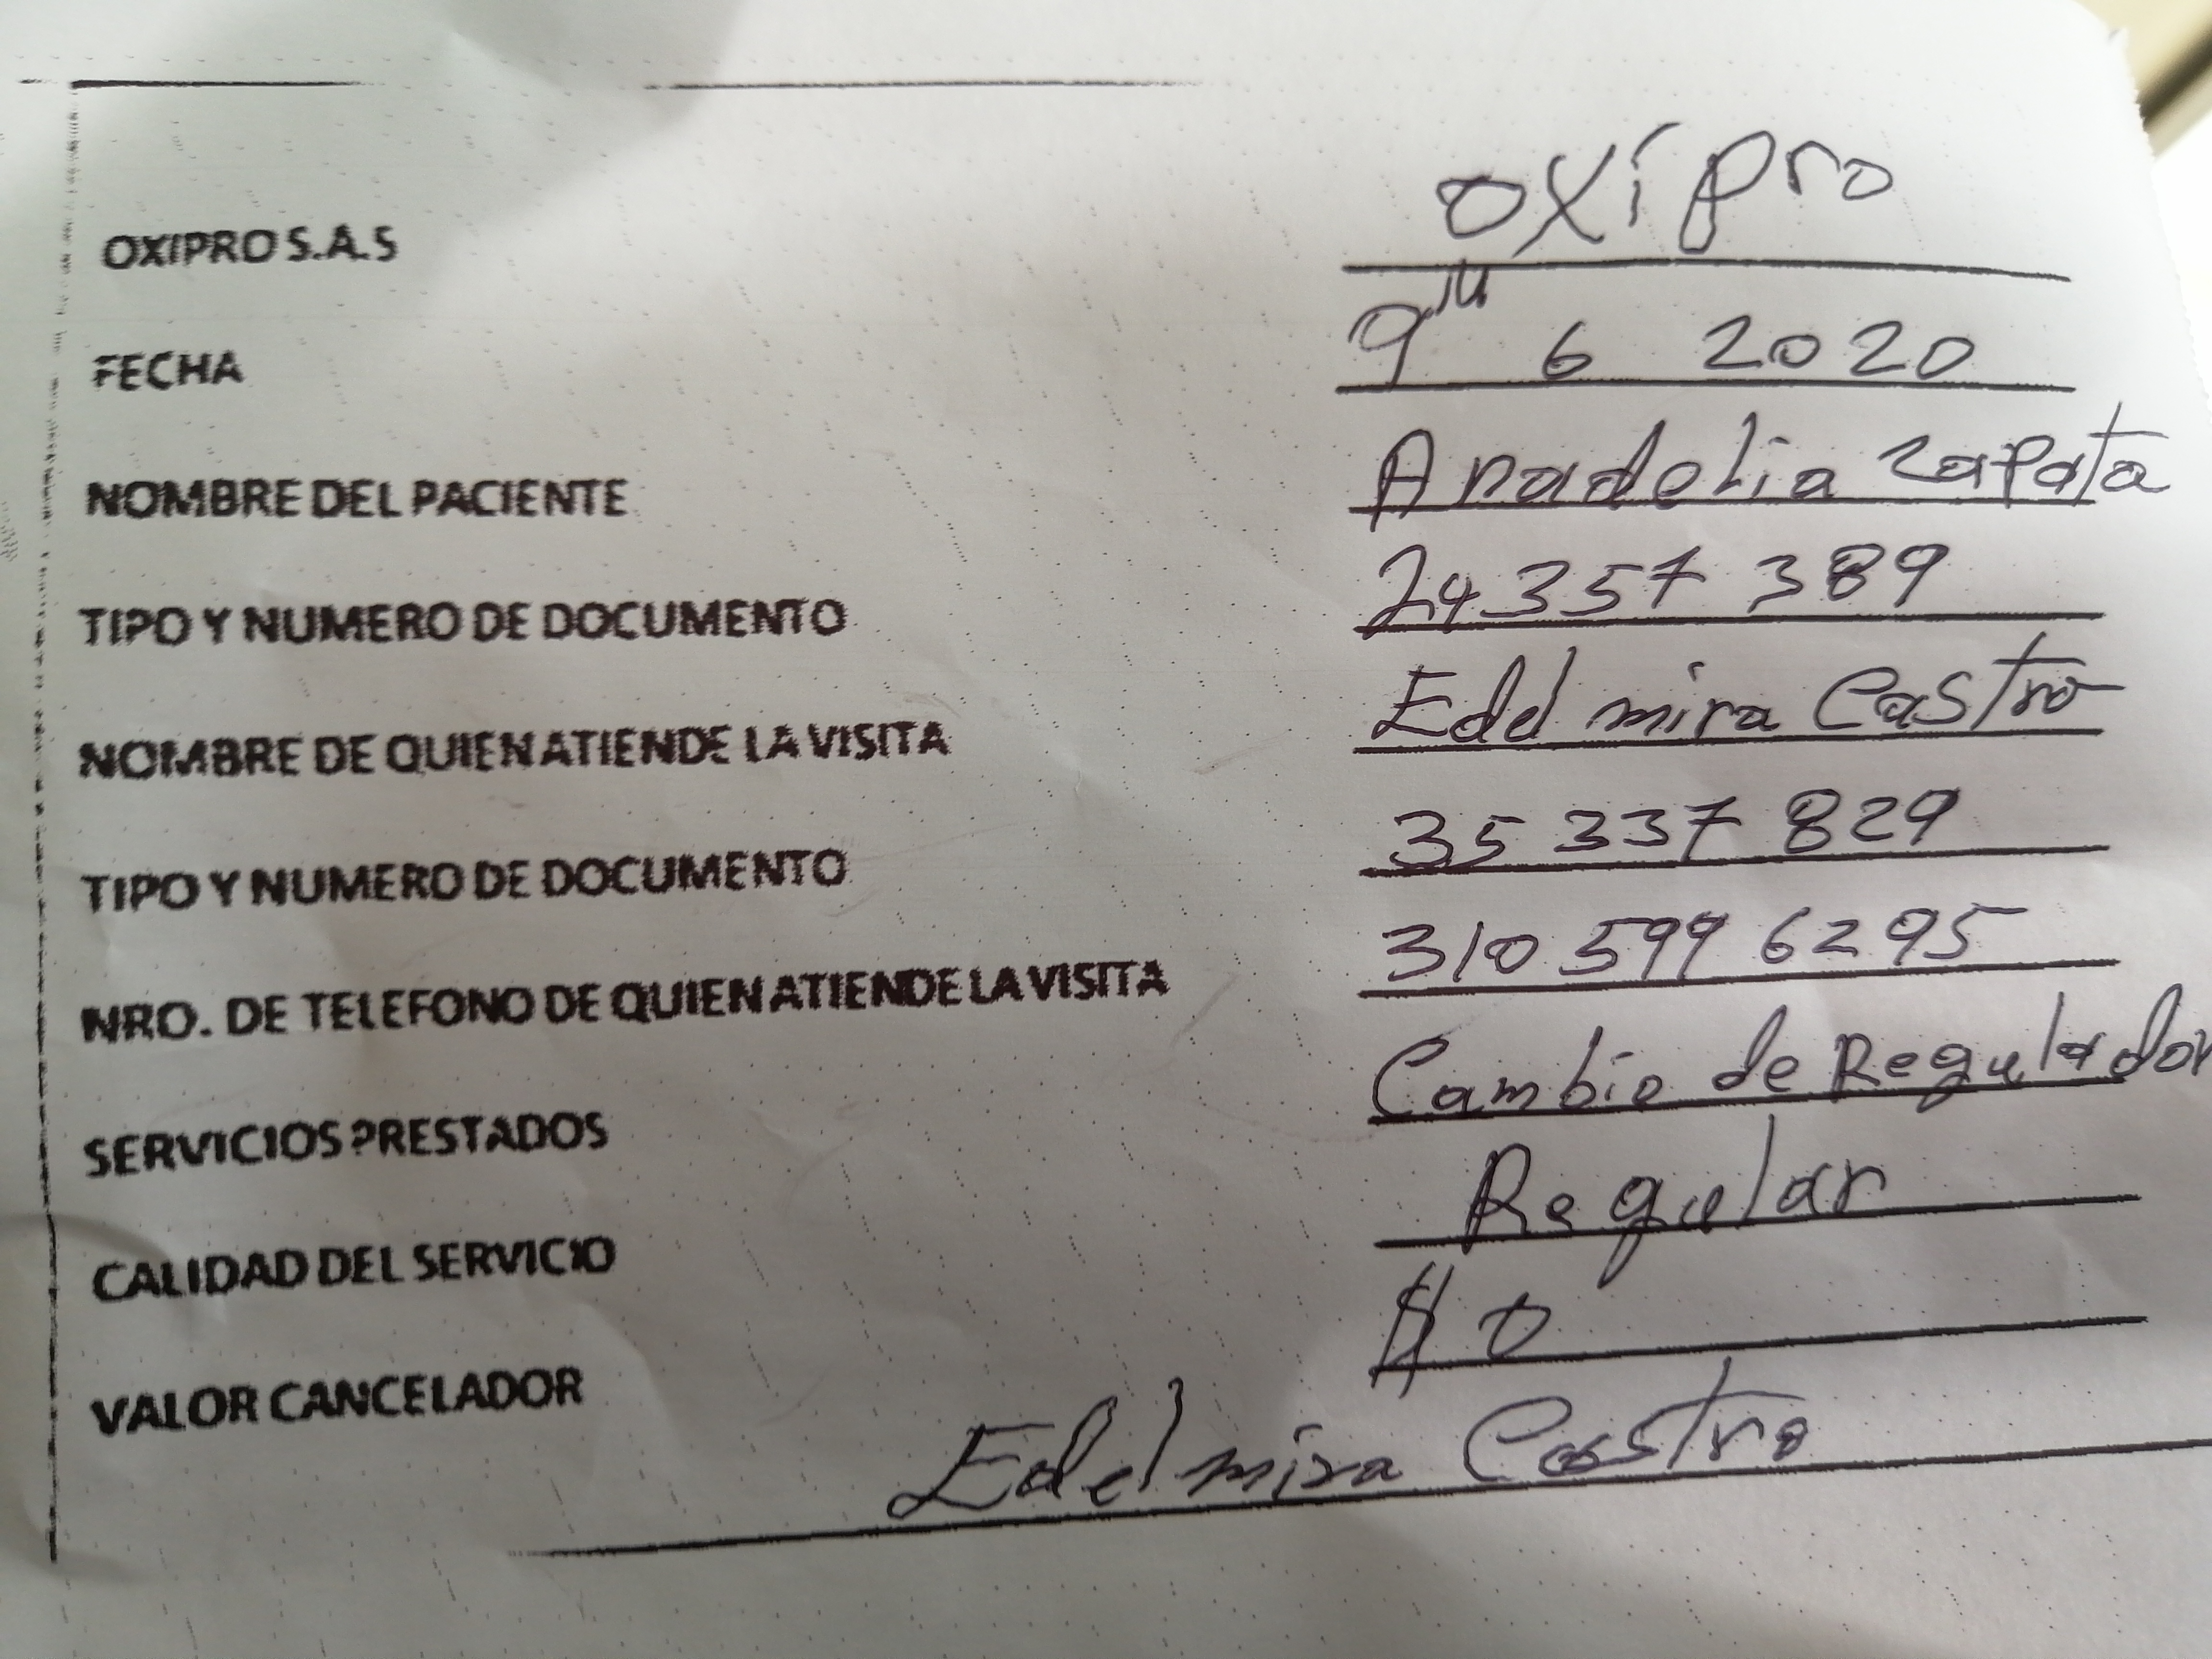 OXIPRO S.A.S oxipro
FECHA 9 6 2020
NOMBRE DEL PACIENTE Anadelia Zapata
TIPO Y NUMERO DE DOCUMENTO 24 357 389
NOMBRE DE QUIEN ATIENDE LA VISITA Edelmira Castro
TIPO Y NUMERO DE DOCUMENTO 35 337 829
NRO. DE TELEFONO DE QUIEN ATIENDE LA VISITA 310 599 6295
SERVICIOS PRESTADOS Cambio de Regulador
CALIDAD DEL SERVICIO Regular
VALOR CANCELADOR $ 0
Edelmira Castro